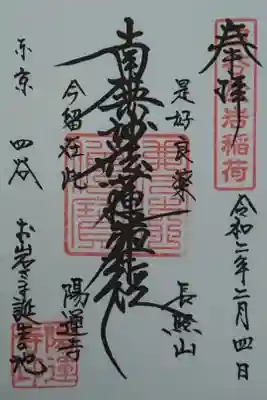 奉拝
令和二年二月四日
是好良薬
長照山
南無妙法蓮華経
今留在此
陽運寺
東京 四谷
お岩さま誕生の地